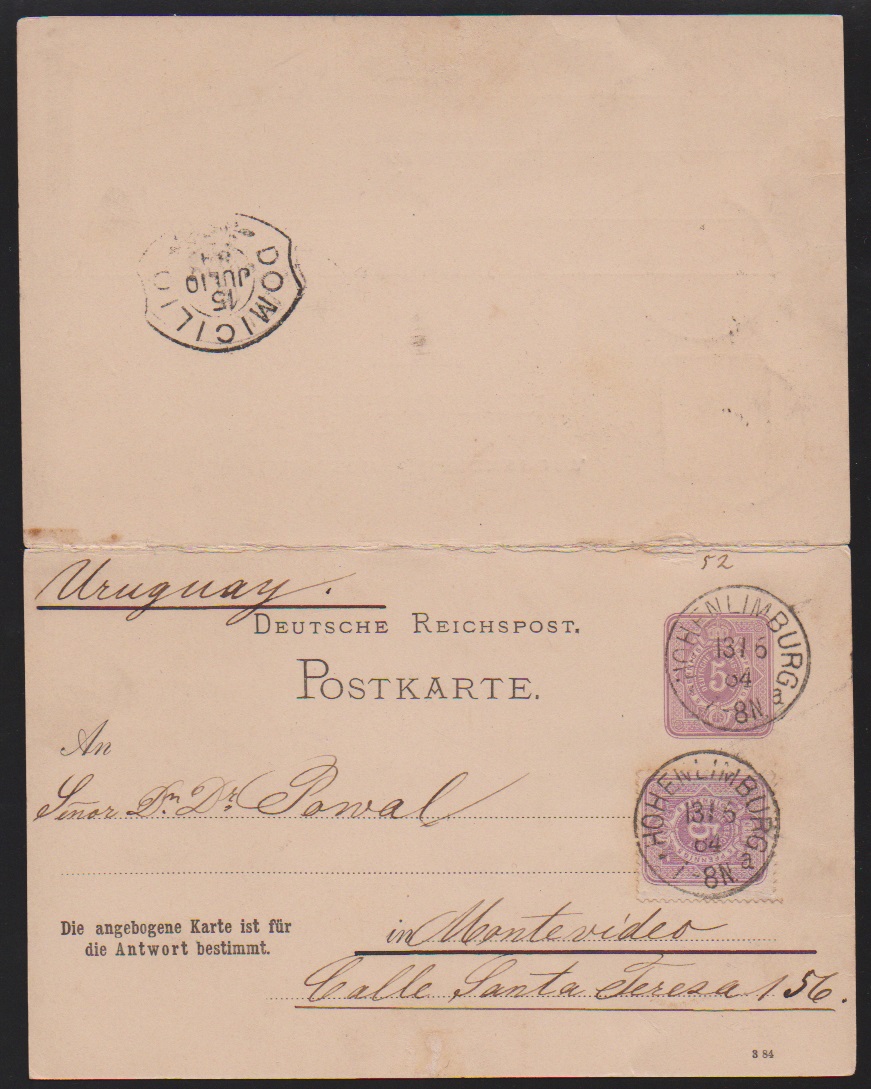 DOMICILIO
15
JULIO
84
52
Uruguay.
DEUTSCHE REICHSPOST.
POSTKARTE.
HOHENLIMBURG
13/6
84
7-8N.
a
5
An
Señor Dn. Dr. Powal
HOHENLIMBURG
13/6
84
7-8N.
a
5
PFENNIG
Die angebogene Karte ist für
die Antwort bestimmt.
in Montevideo
Calle Santa Teresa 156.
3 84